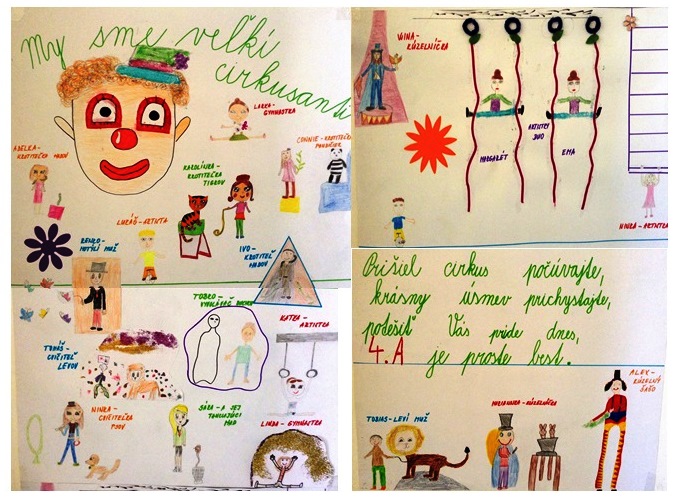 My sme veľkí
cirkusanti
LARKA-
GYMNASTKA
ADELKA-
KROTITEĽKA HADOV
CONNIE-KROTITEĽKA
KAROLÍNKA-
KROTITEĽKA
TIGROV
LUKÁŠ-ARTISTA
MOTÝLÍ MUŽ
IVO-
KROTITEĽ
HADOV
VYVOLÁVAČ DUCHOV
KATKA-
ARTISTKA
TOMÁŠ-
CVIČITEĽ
LEVOV
NINKA-
CVIČITEĽKA
PSOV
SÁRA- A JEJ
TANCUJÚCI
HAD
LINDA-GYMNASTKA
KÚZELNÍČKA
MARGARÉT
ARTISTKY
DUO
EMA
ARTISTKA
Prišiel cirkus počúvajte,
krásny úsmev prichystajte,
potešiť Vás príde dnes,
4.A je proste best.
ALEX-
KÚZELNÝ
ŠAŠO
KÚZELNÍČKA
TOBIAS-LEVÍ MUŽ